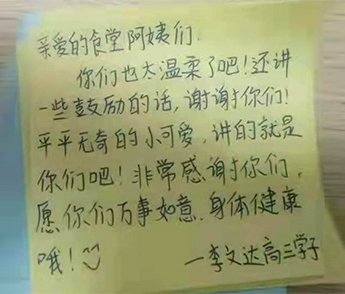 亲爱的食堂阿姨们.
你们也太温柔了吧!还讲
一些鼓励的话,谢谢你们!
平平无奇的小可爱,讲的就是
你们吧!非常感谢你们,
愿你们万事如意.身体健康
哦!
—李文达高三学子